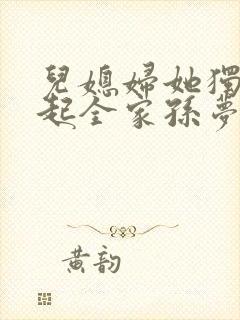 兒媳婦她獨
起全家孫夢
黃韵